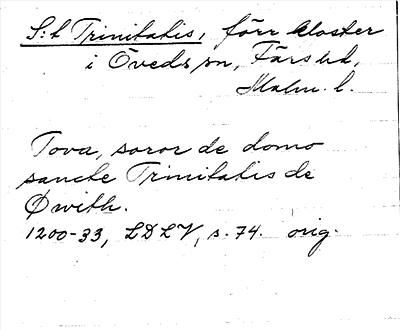 S:t Trinitatis, förr kloster
i Öveds sn, Färs hd,
Malm. l.
Tova, soror de domo
sancte Trinitatis de
Øwith.
1200-33, LDLV, s. 74. orig.